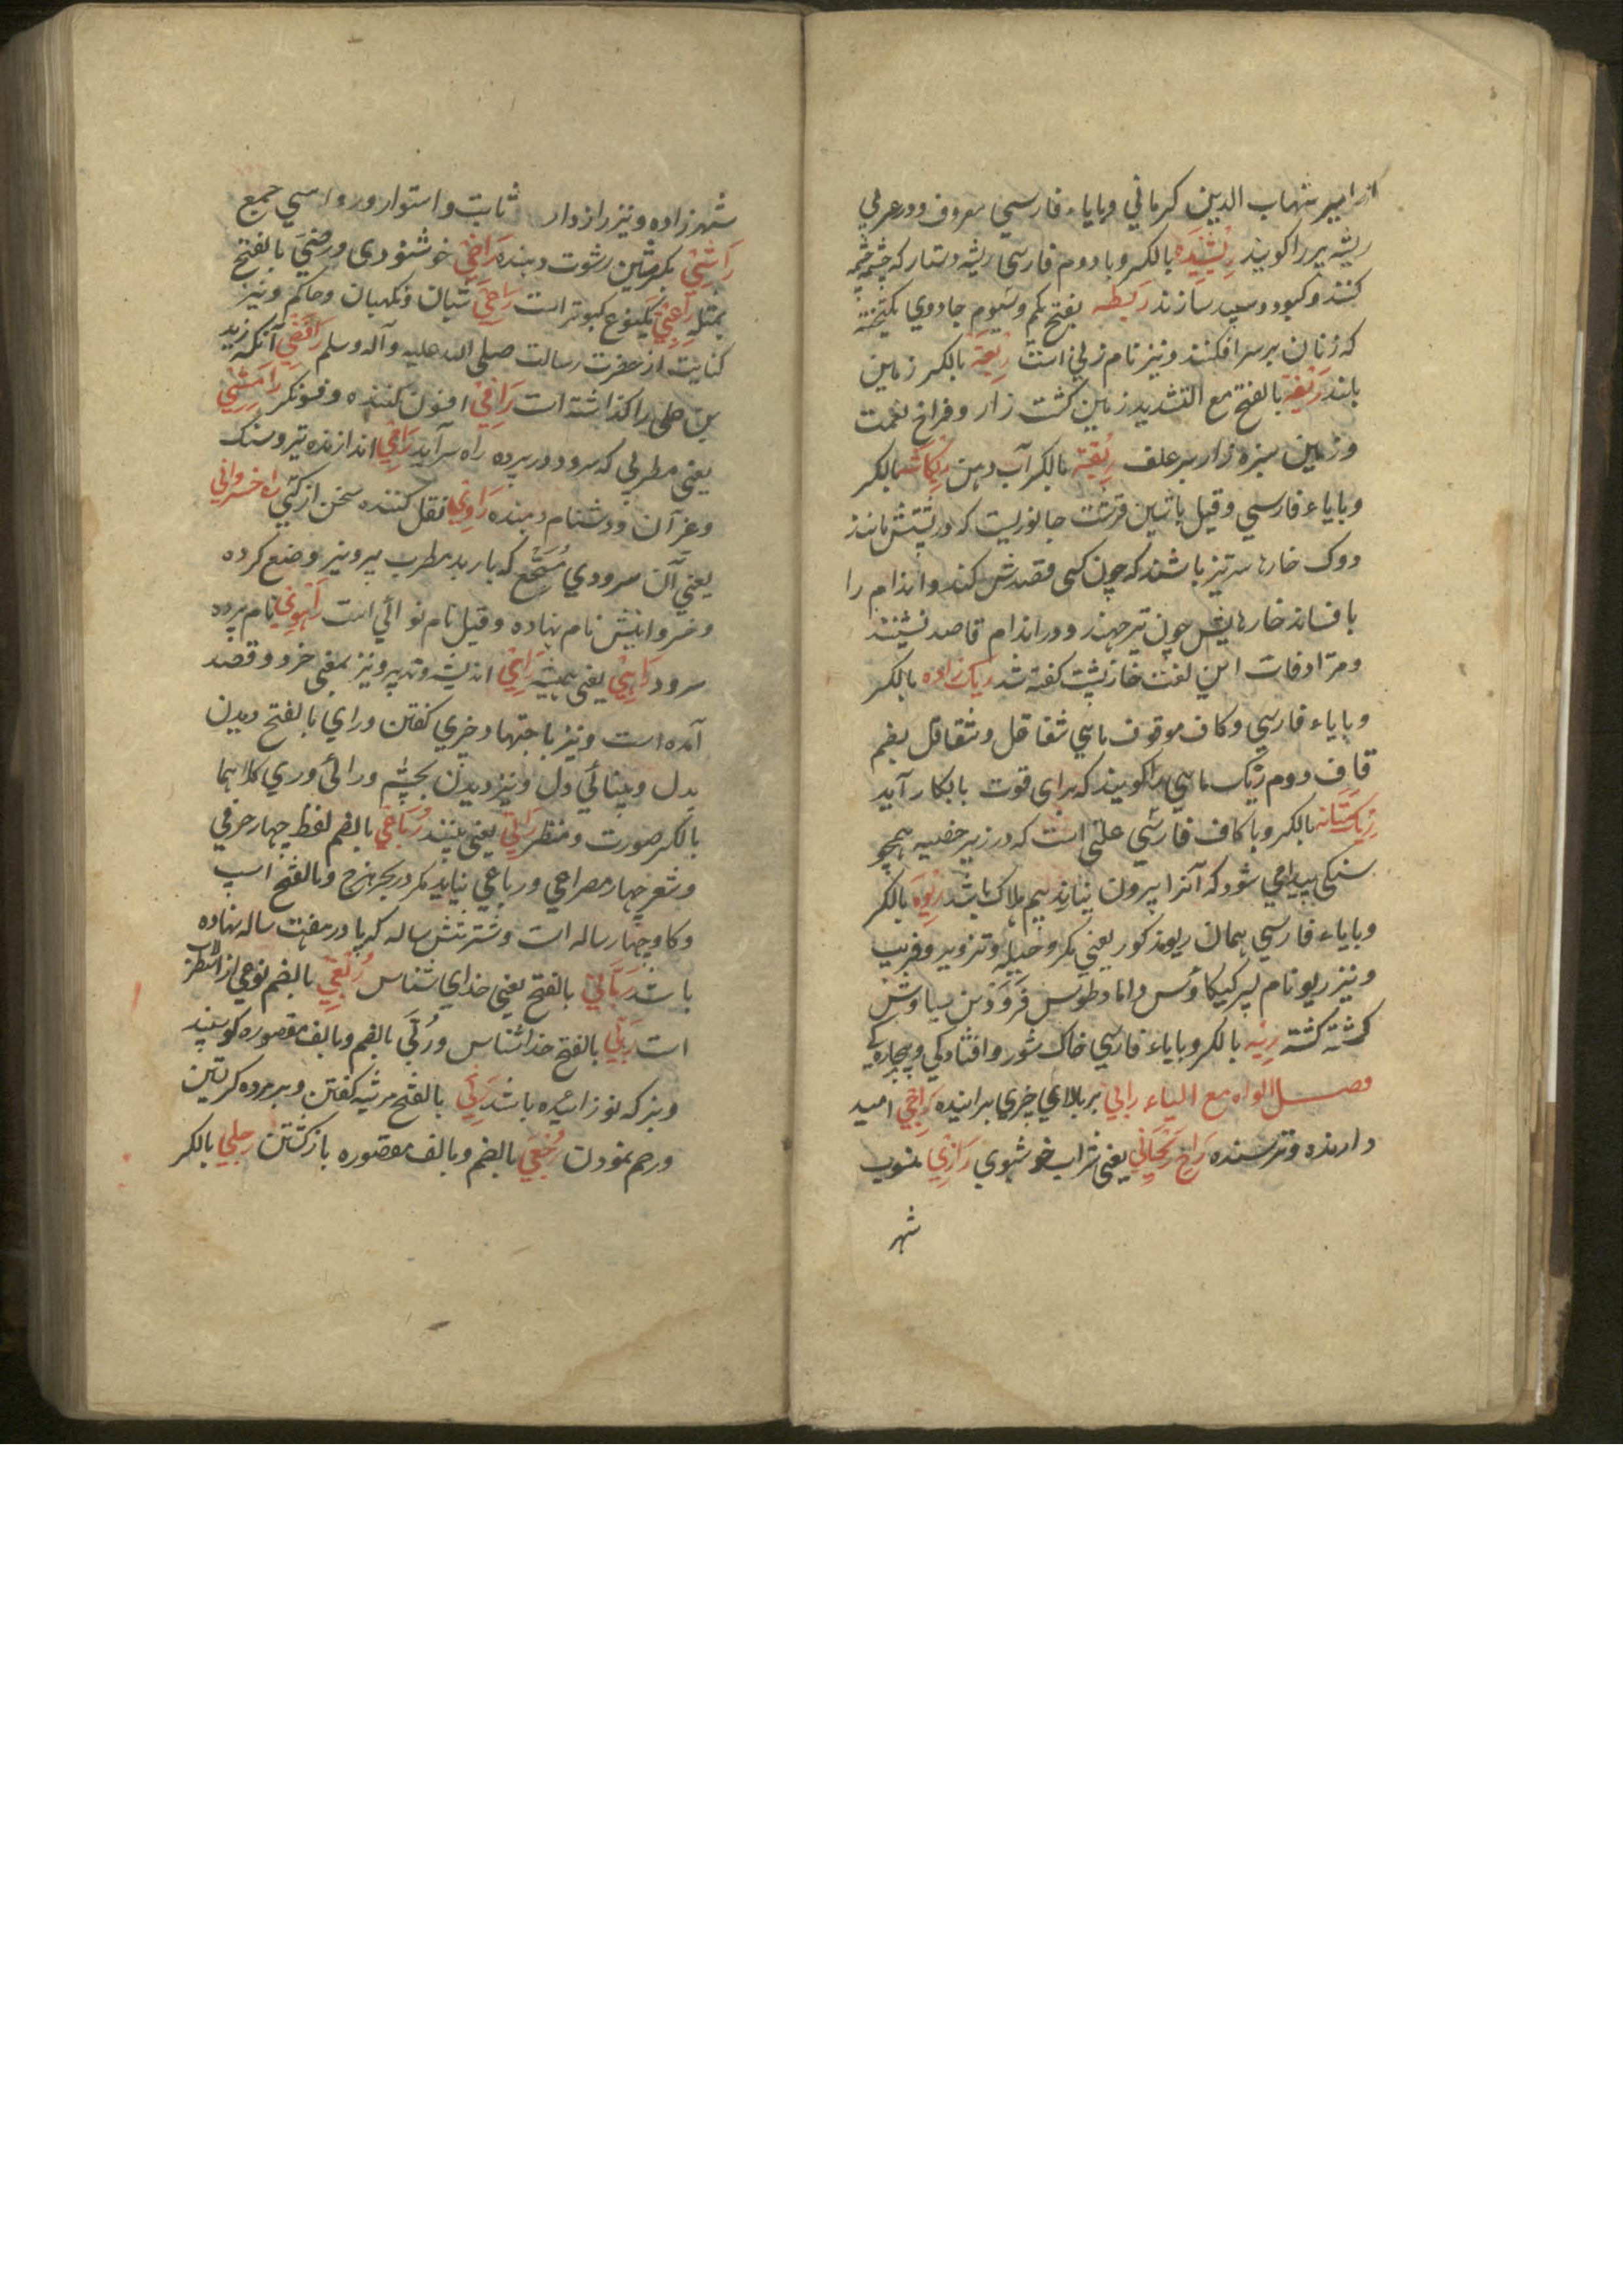 از امیر شهاب الدین کرمانی و بایاء فارسی معروف و در عربی
ریشه پر را کویند رِیْشِیْدَه بالکسر و با دوم فارسی ریشه دستار که چشمه چشمه
کنند و کبود و سپید سازند رَیطه بفتح یکم و سیوم جادری یکتخته
که زنان بر سر افکنند و نیز نام زنی است رِیْعَة بالکسر زمین
بلند رَیّفة بالفتح مع التشدید زمین کشت زار و فراخ نعمت
و زمین سبزه زار پر علف رِیْقَة بالکسر آب دهن رِیْکاشه بالکسر
و بایاء فارسی و قیل باشین قرشت جانوریست که در تنش مانند
دوک خارها سر تیز باشند که چون کسی قصدش کند و اندام را
بافساند خارهایش چون تیر جهند و در اندام قاصد نشینند
و مترادفات این لغت خارپشت کفته شد ریک زاده بالکسر
و بایاء فارسی و کاف موقوف ماهی شقاقل و شقاقل بضم
قاف دوم ریک ماهی را کویند که برای قوت باه بکار آید
رِیک مَثَانه بالکسر و با کاف فارسی علتی است که در زیر خصیه همچو
سنکی پیدا می شود که آنرا بیرون نیارند بیم هلاک باشد رِیْوَه بالکسر
و بایاء فارسی همان ریو مذکور یعنی مکر و حیله و تزویر و فریب
و نیز ریو نام پسر کیکاؤس داماد طوس فَرَوَدْ بن سیاوش
کشته کشته رِیه بالکسر و بایاء فارسی خاک شور و افتادکی و بیچارکی
فصل الراء مع الیاء رابی بر بالای چیزی براینده رَاجِی امید
دارنده و ترسنده رَاح رَیْحَانِی یعنی شراب خوشبوی رَازِی منسوب
شهر
شهرزاده و نیز رازدار ثابت و استوار و رواسی جمع
رَاشِیْ بکسر شین رشوت دهنده رَاضِیْ خوشنودی و رضیَ بالفتح
بمثله رَاعِبِیْ یکنوع کبوتر است رَاعِیْ شبان و نکهبان و حاکم و نیز
کنایت از حضرت رسالت صلی الله علیه و آله و سلم رَافضِی آنکه زید
بن علی را کذاشته است رَاقِیْ افسون کننده و فسونکر رَامِشِیْ
یعنی مطربی که سرود در پرده راه سراید رَامِیْ اندازنده تیر و سنک
و غیر آن و دشنام دهنده رَاوِیْ نقل کننده سخن از کسی راه خسروانی
یعنی آن سرودی مُسَجَّع که باربد مطرب پرویز وضع کرده
و خسروانیش نام نهاده و قیل نام نوائی است رَاهوِی نام پرده
سرود رَاهِیْ یعنی همیشه رَایْ اندیشه و تدبیر و نیز بمعنی خرد و قصد
آمده است و نیز باجتهاد چیزی کفتن و رای بالفتح دیدن
بدل و بینائی دل و نیز دیدن بچشم و رائی وری کلاهما
بالکسر صورت و منظر رَائِی یعنی بیننده رُبَاعِی بالضم لفظ چهار حرفی
و شعر چهار مصراعی و رباعی نیاید مکر در بحر هزج و بالفتح اسپ
و کاو چهار ساله است و شتر شش ساله که پا در هفت ساله نهاده
باشد رَبّانِیْ بالفتح یعنی خدای شناس رُبعِی بالضم نوعی از اسطرلاب
است رَبّی بالفتح خدا شناس و رُبَّی بالضم و بالف مقصوره کوسپند
و بز که نو زائیده باشد رَثْی بالفتح مرثیه کفتن و بر مرده کریستن
و رحم نمودن رُجْعَی بالضم و بالف مقصوره بازکشتن رجلی بالکسر